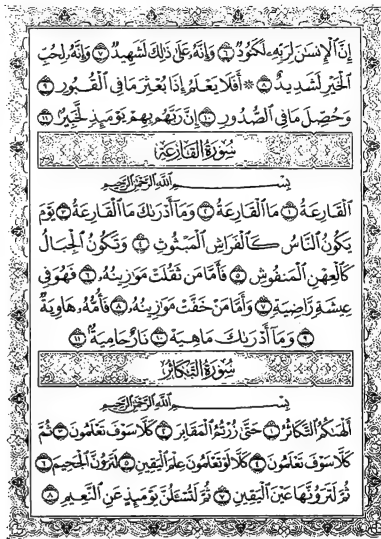 إِنَّ الْإِنسَانَ لِرَبِّهِ لَكَنُودٌ ٦ وَإِنَّهُ عَلَىٰ ذَٰلِكَ لَشَهِيدٌ ٧ وَإِنَّهُ لِحُبِّ
الْخَيْرِ لَشَدِيدٌ ٨ ۞ أَفَلَا يَعْلَمُ إِذَا بُعْثِرَ مَا فِي الْقُبُورِ ٩
وَحُصِّلَ مَا فِي الصُّدُورِ ١٠ إِنَّ رَبَّهُم بِهِمْ يَوْمَئِذٍ لَّخَبِيرٌ ١١
سُورَةُ الْقَارِعَةِ
بِسْمِ اللَّهِ الرَّحْمَٰنِ الرَّحِيمِ
الْقَارِعَةُ ١ مَا الْقَارِعَةُ ٢ وَمَا أَدْرَاكَ مَا الْقَارِعَةُ ٣ يَوْمَ
يَكُونُ النَّاسُ كَالْفَرَاشِ الْمَبْثُوثِ ٤ وَتَكُونُ الْجِبَالُ
كَالْعِهْنِ الْمَنفُوشِ ٥ فَأَمَّا مَن ثَقُلَتْ مَوَازِينُهُ ٦ فَهُوَ فِي
عِيشَةٍ رَّاضِيَةٍ ٧ وَأَمَّا مَنْ خَفَّتْ مَوَازِينُهُ ٨ فَأُمُّهُ هَاوِيَةٌ
٩ وَمَا أَدْرَاكَ مَا هِيَهْ ١٠ نَارٌ حَامِيَةٌ ١١
سُورَةُ التَّكَاثُرِ
بِسْمِ اللَّهِ الرَّحْمَٰنِ الرَّحِيمِ
أَلْهَاكُمُ التَّكَاثُرُ ١ حَتَّىٰ زُرْتُمُ الْمَقَابِرَ ٢ كَلَّا سَوْفَ تَعْلَمُونَ ٣ ثُمَّ
كَلَّا سَوْفَ تَعْلَمُونَ ٤ كَلَّا لَوْ تَعْلَمُونَ عِلْمَ الْيَقِينِ ٥ لَتَرَوُنَّ الْجَحِيمَ ٦
ثُمَّ لَتَرَوُنَّهَا عَيْنَ الْيَقِينِ ٧ ثُمَّ لَتُسْأَلُنَّ يَوْمَئِذٍ عَنِ النَّعِيمِ ٨